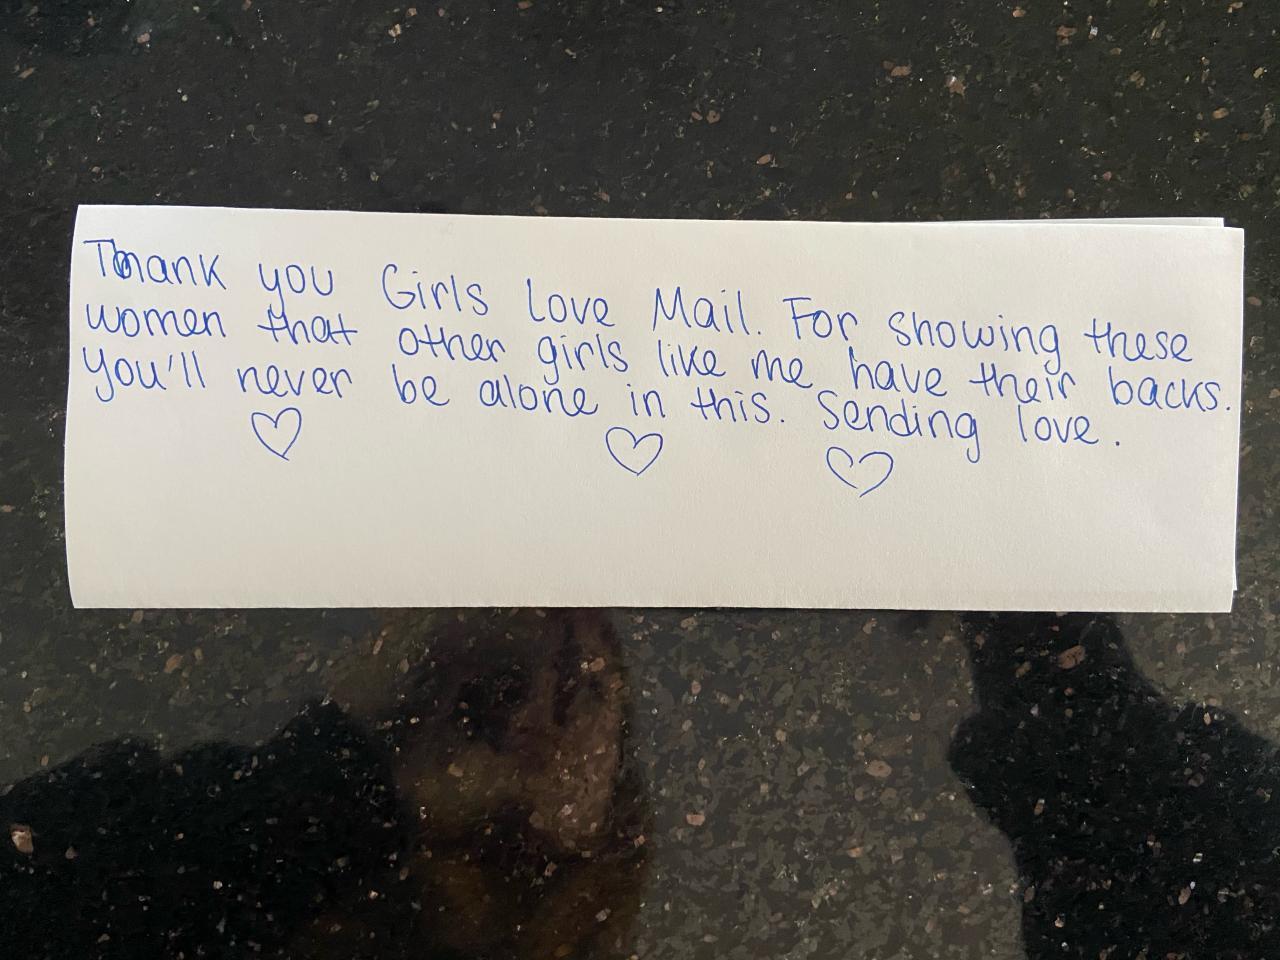 Thank you Girls Love Mail. For showing these
women that other girls like me have their backs.
you'll never be alone in this. Sending love.